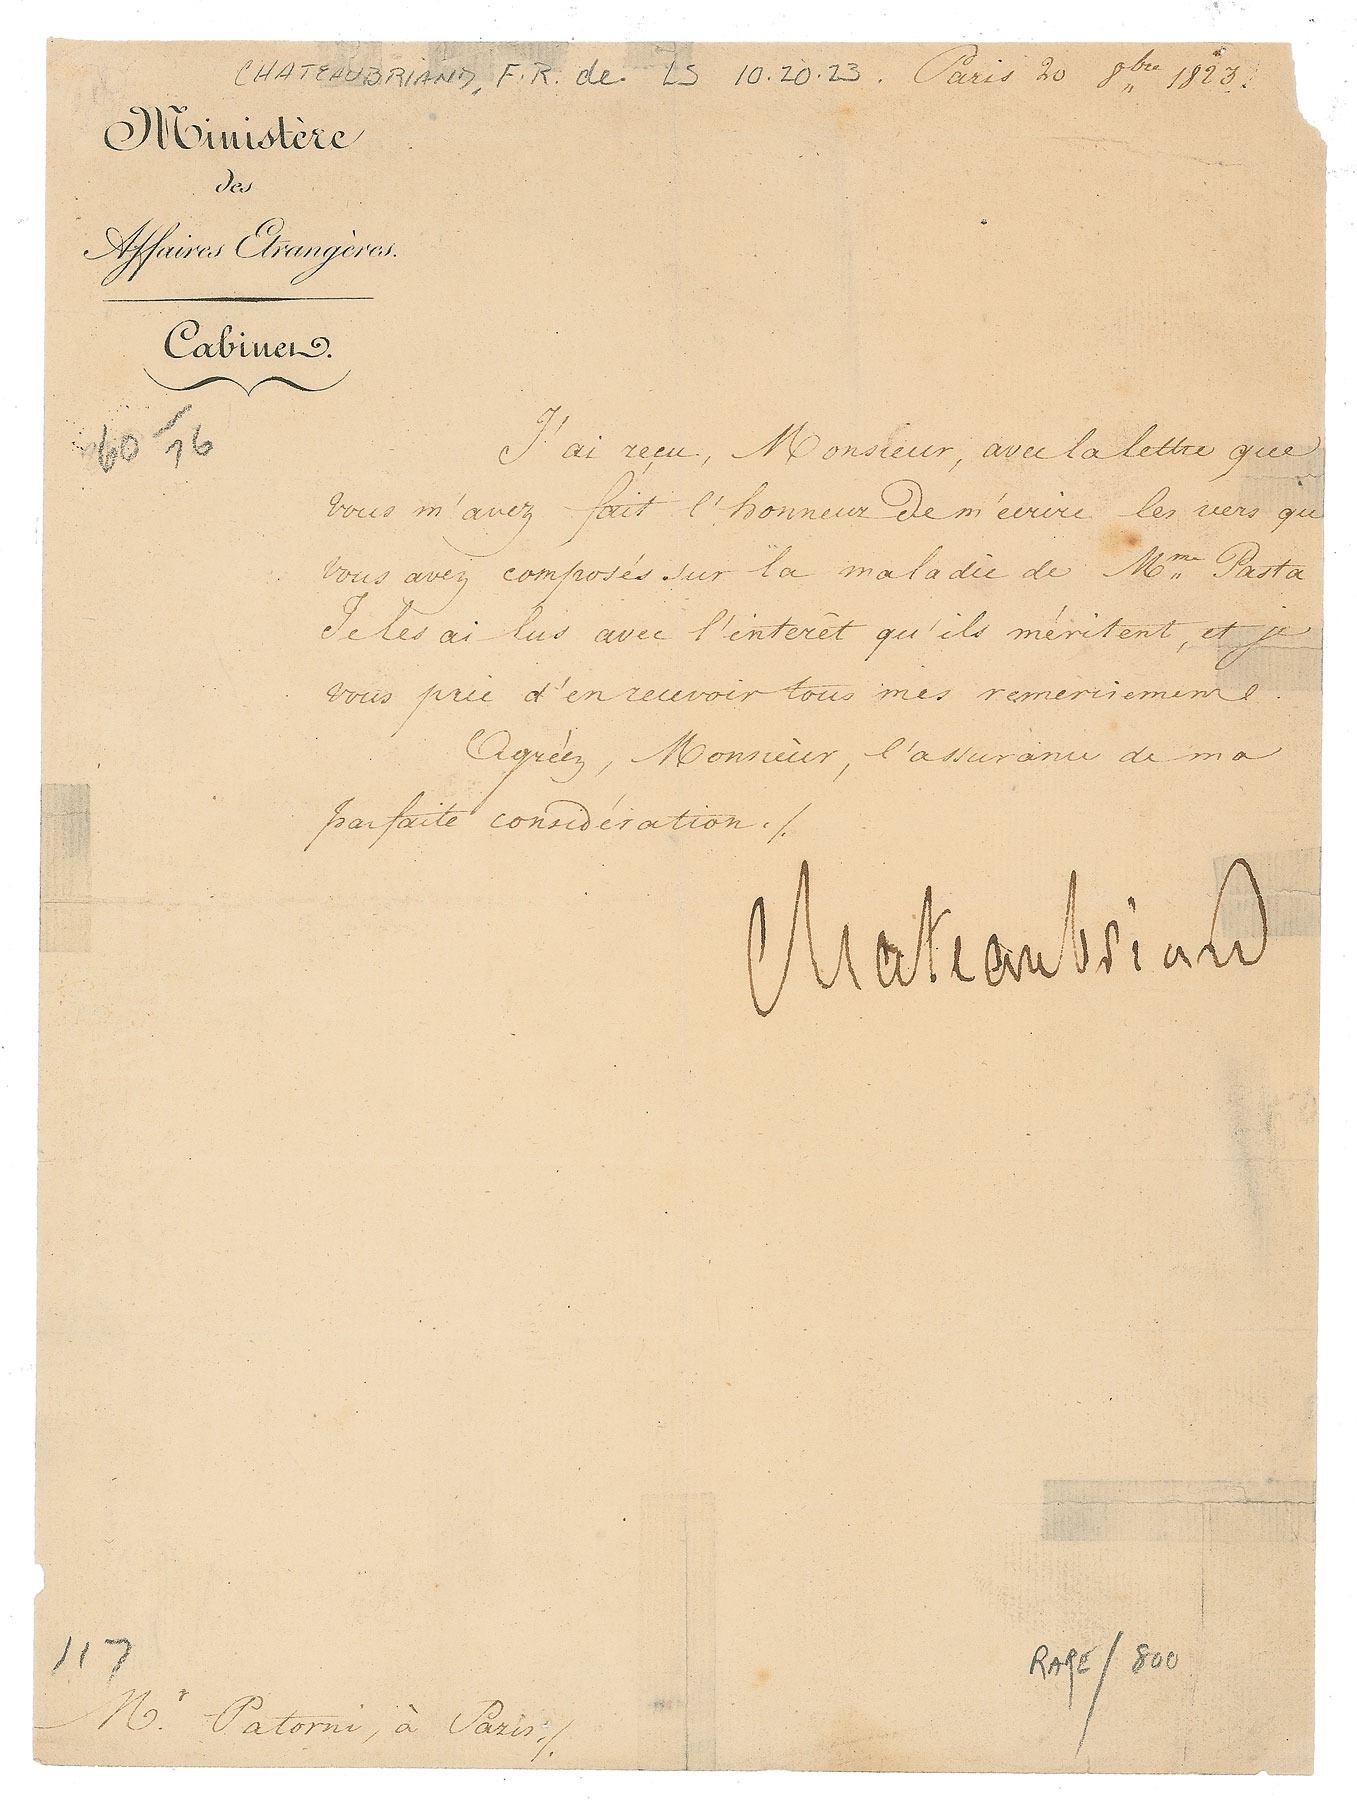 CHATEAUBRIAND, F.R. de. LS 10.20.23. Paris 20 8bre 1823.
Ministère
des
Affaires Etrangères.
Cabinet.
60 16
J'ai reçu, Monsieur, avec la lettre que
vous m'avez fait l'honneur de m'écrire les vers que
vous avez composés sur la maladie de Mme Pasta
Je les ai lus avec l'interêt qu'ils méritent, et je
vous prie d'en recevoir tous mes remerciemens.
Agréez, Monsieur, l'assurance de ma
parfaite considération ./.
Chateaubriand
117
RARE/800
Mr. Patorni, à Paris ./.